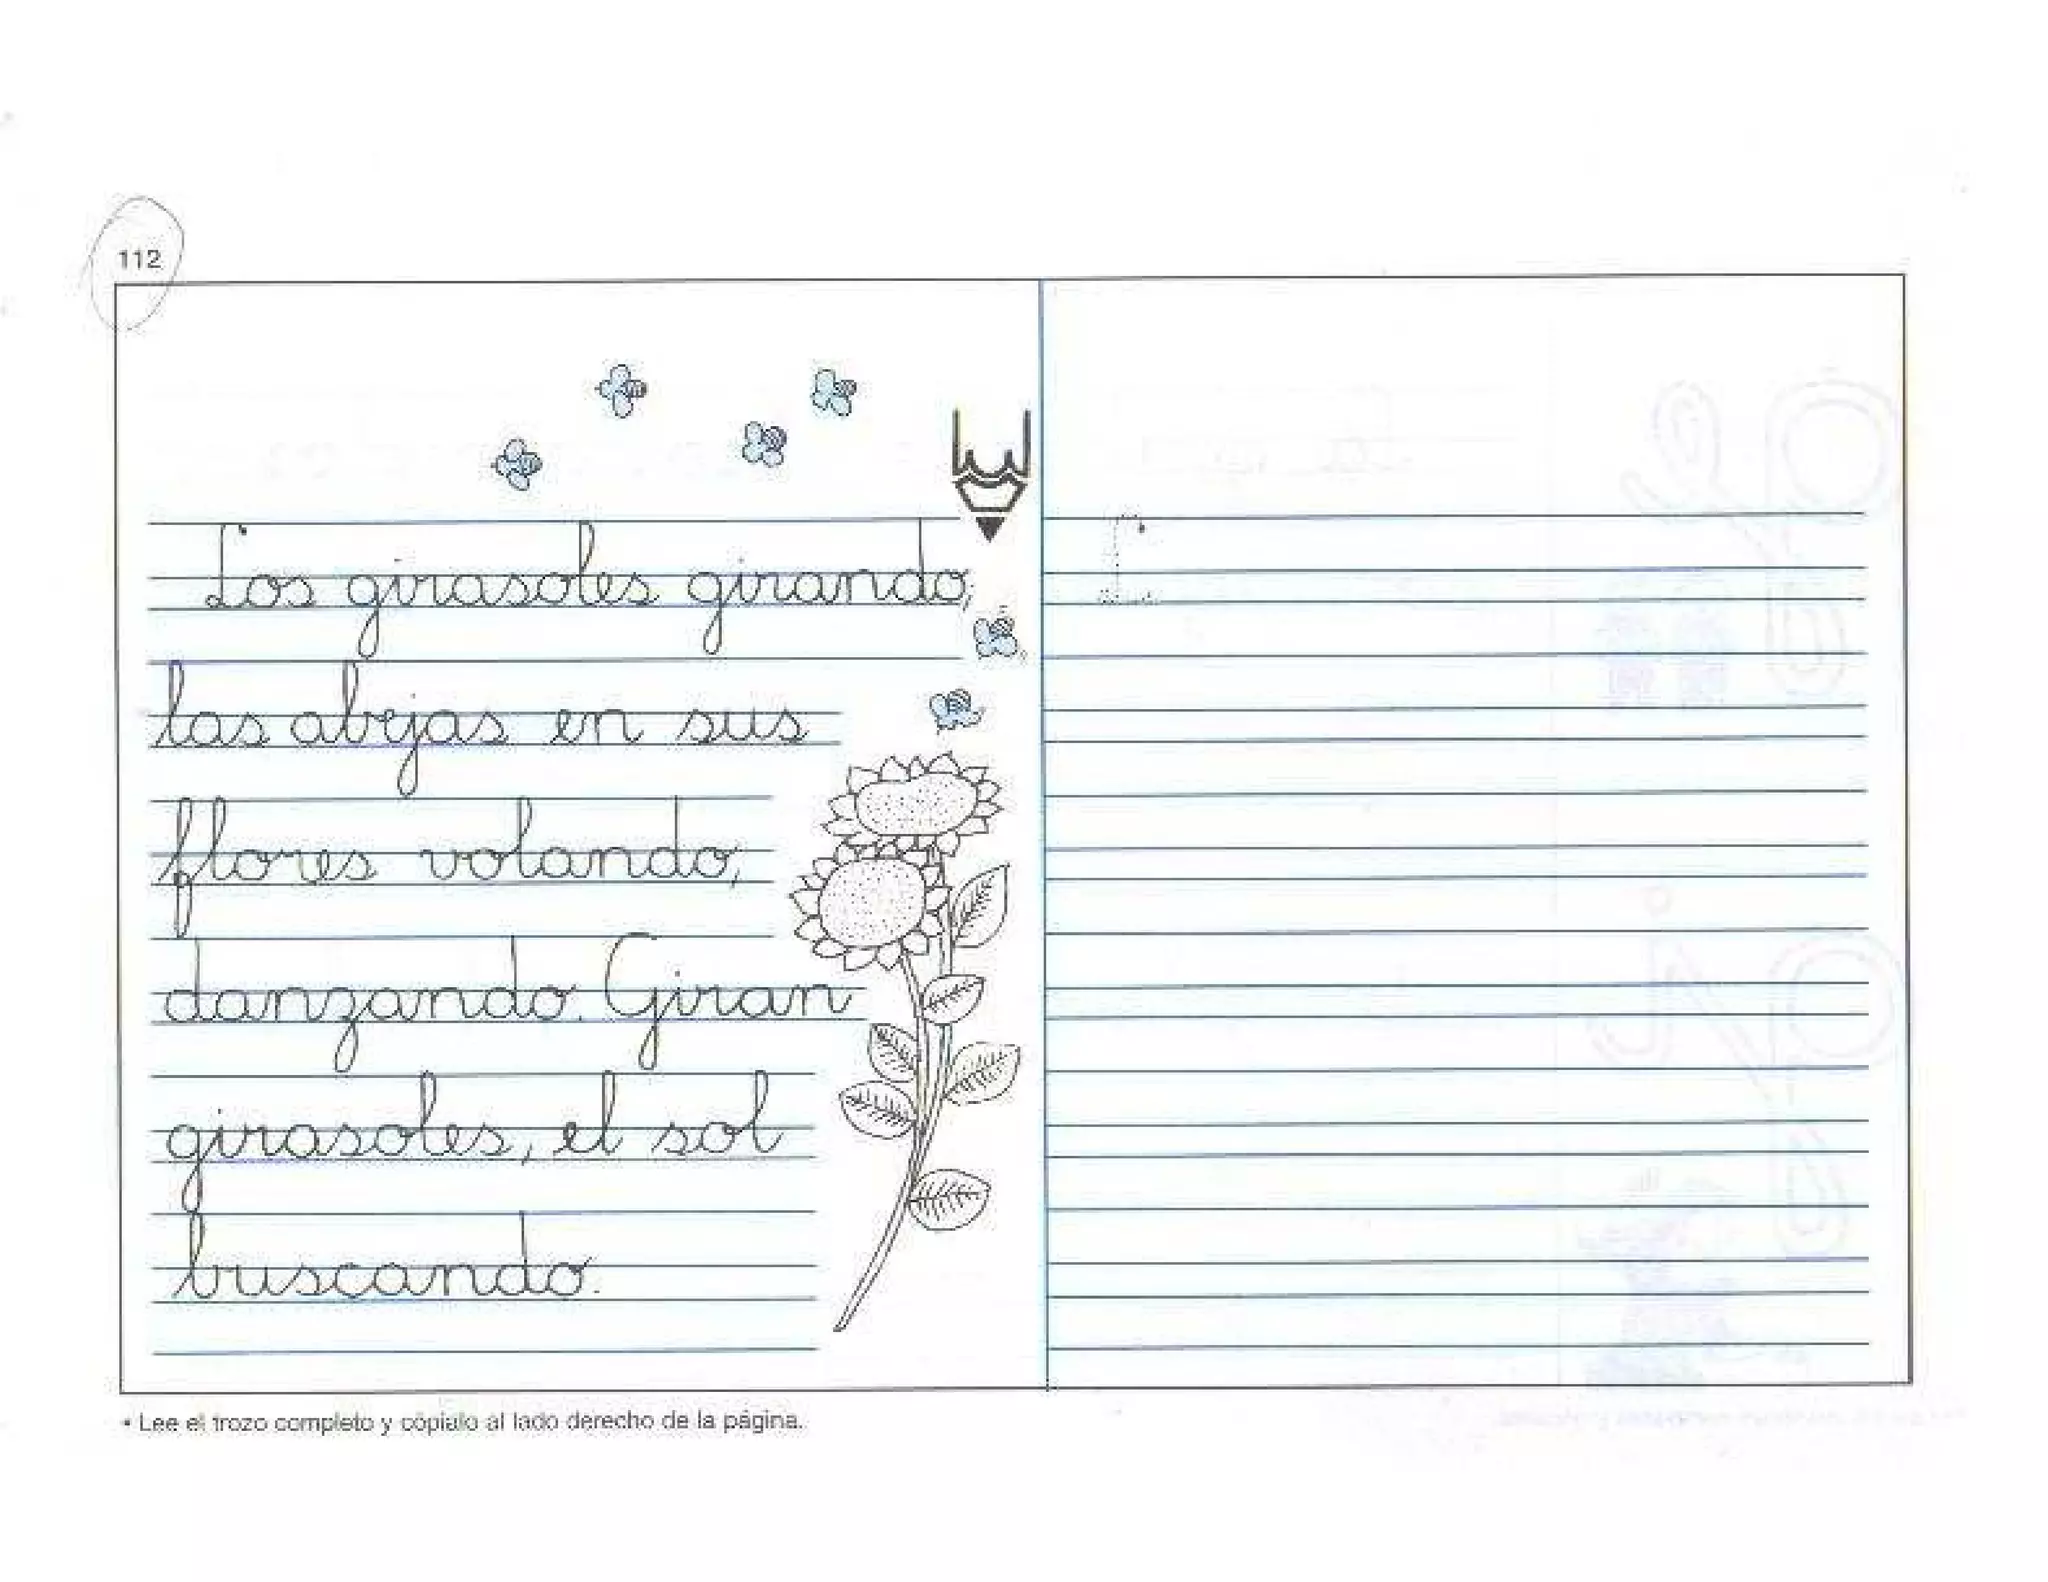 112
Los girasoles girando,
las abejas en sus
flores volando,
danzando. Giran
girasoles, el sol
buscando.
L
• Lee el trozo completo y cópialo al lado derecho de la página.